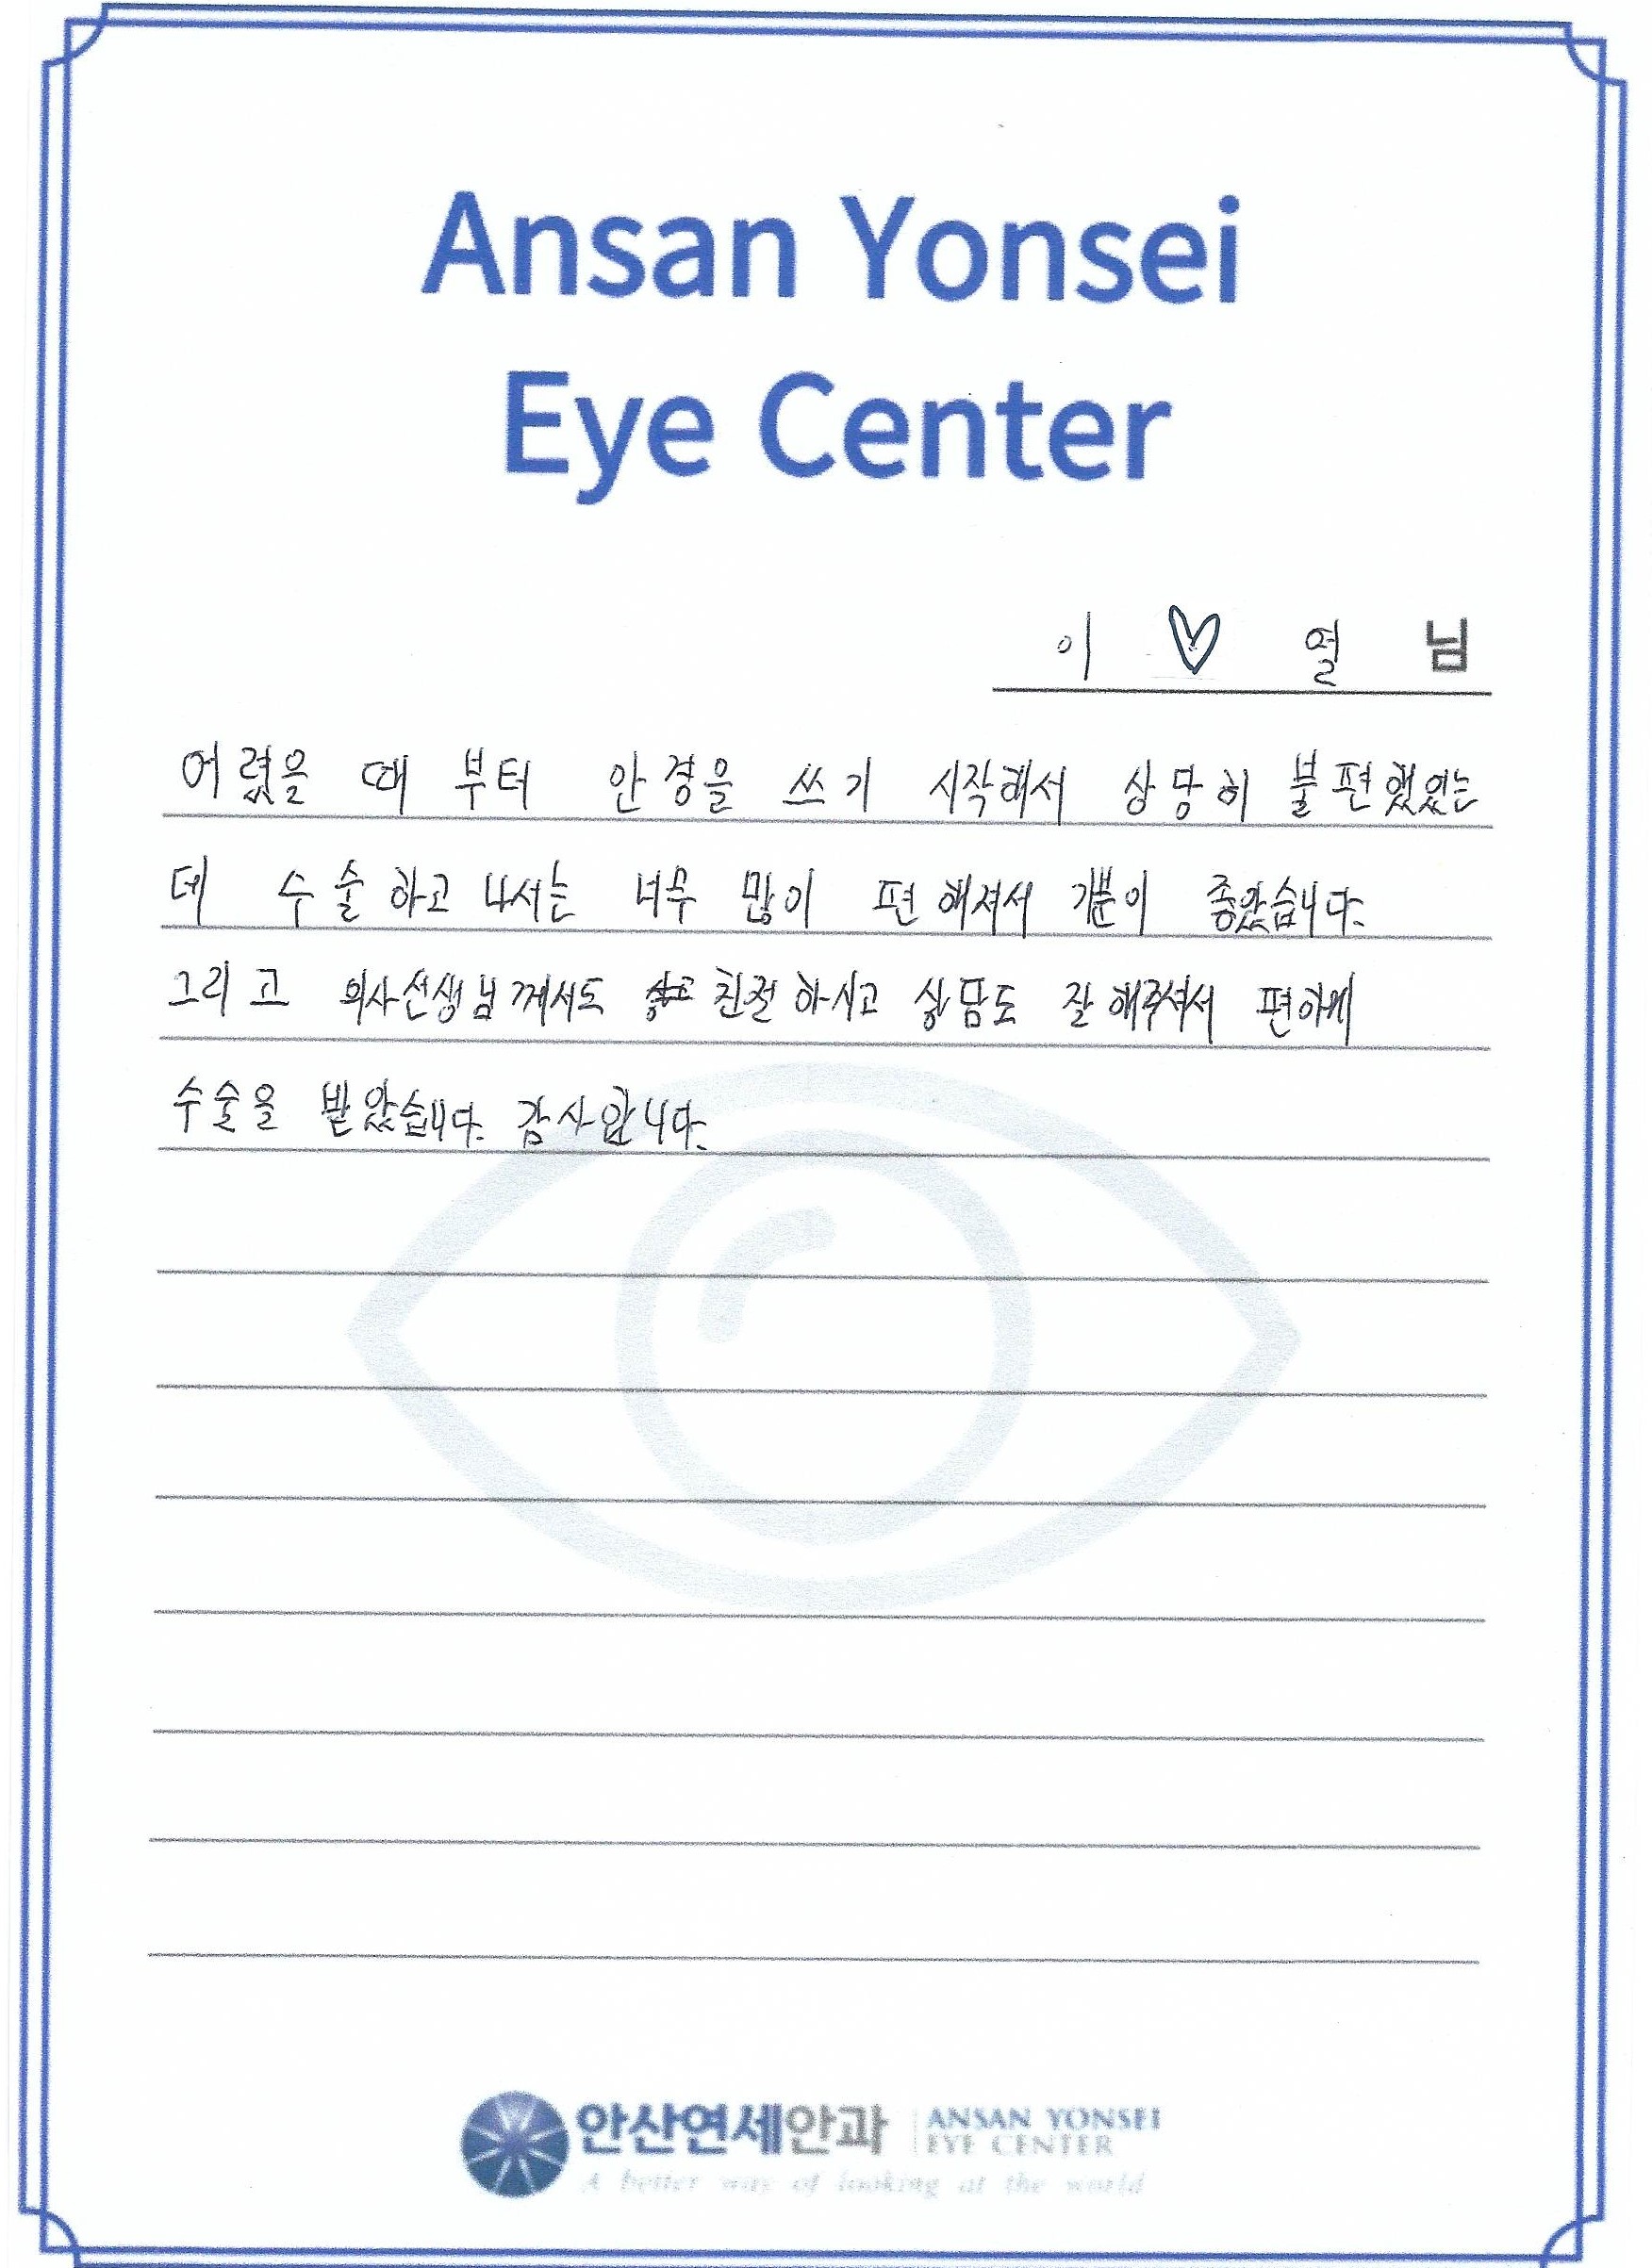 Ansan Yonsei
Eye Center
이 ♡ 열 님
어렸을 때 부터 안경을 쓰기 시작해서 상당히 불편했었는
데 수술하고 나서는 너무 많이 편해져서 기분이 좋았습니다.
그리고 의사선생님께서도 친절하시고 상담도 잘해주셔서 편하게
수술을 받았습니다. 감사합니다.
안산연세안과 ANSAN YONSEI
EYE CENTER
A better way of looking at the world